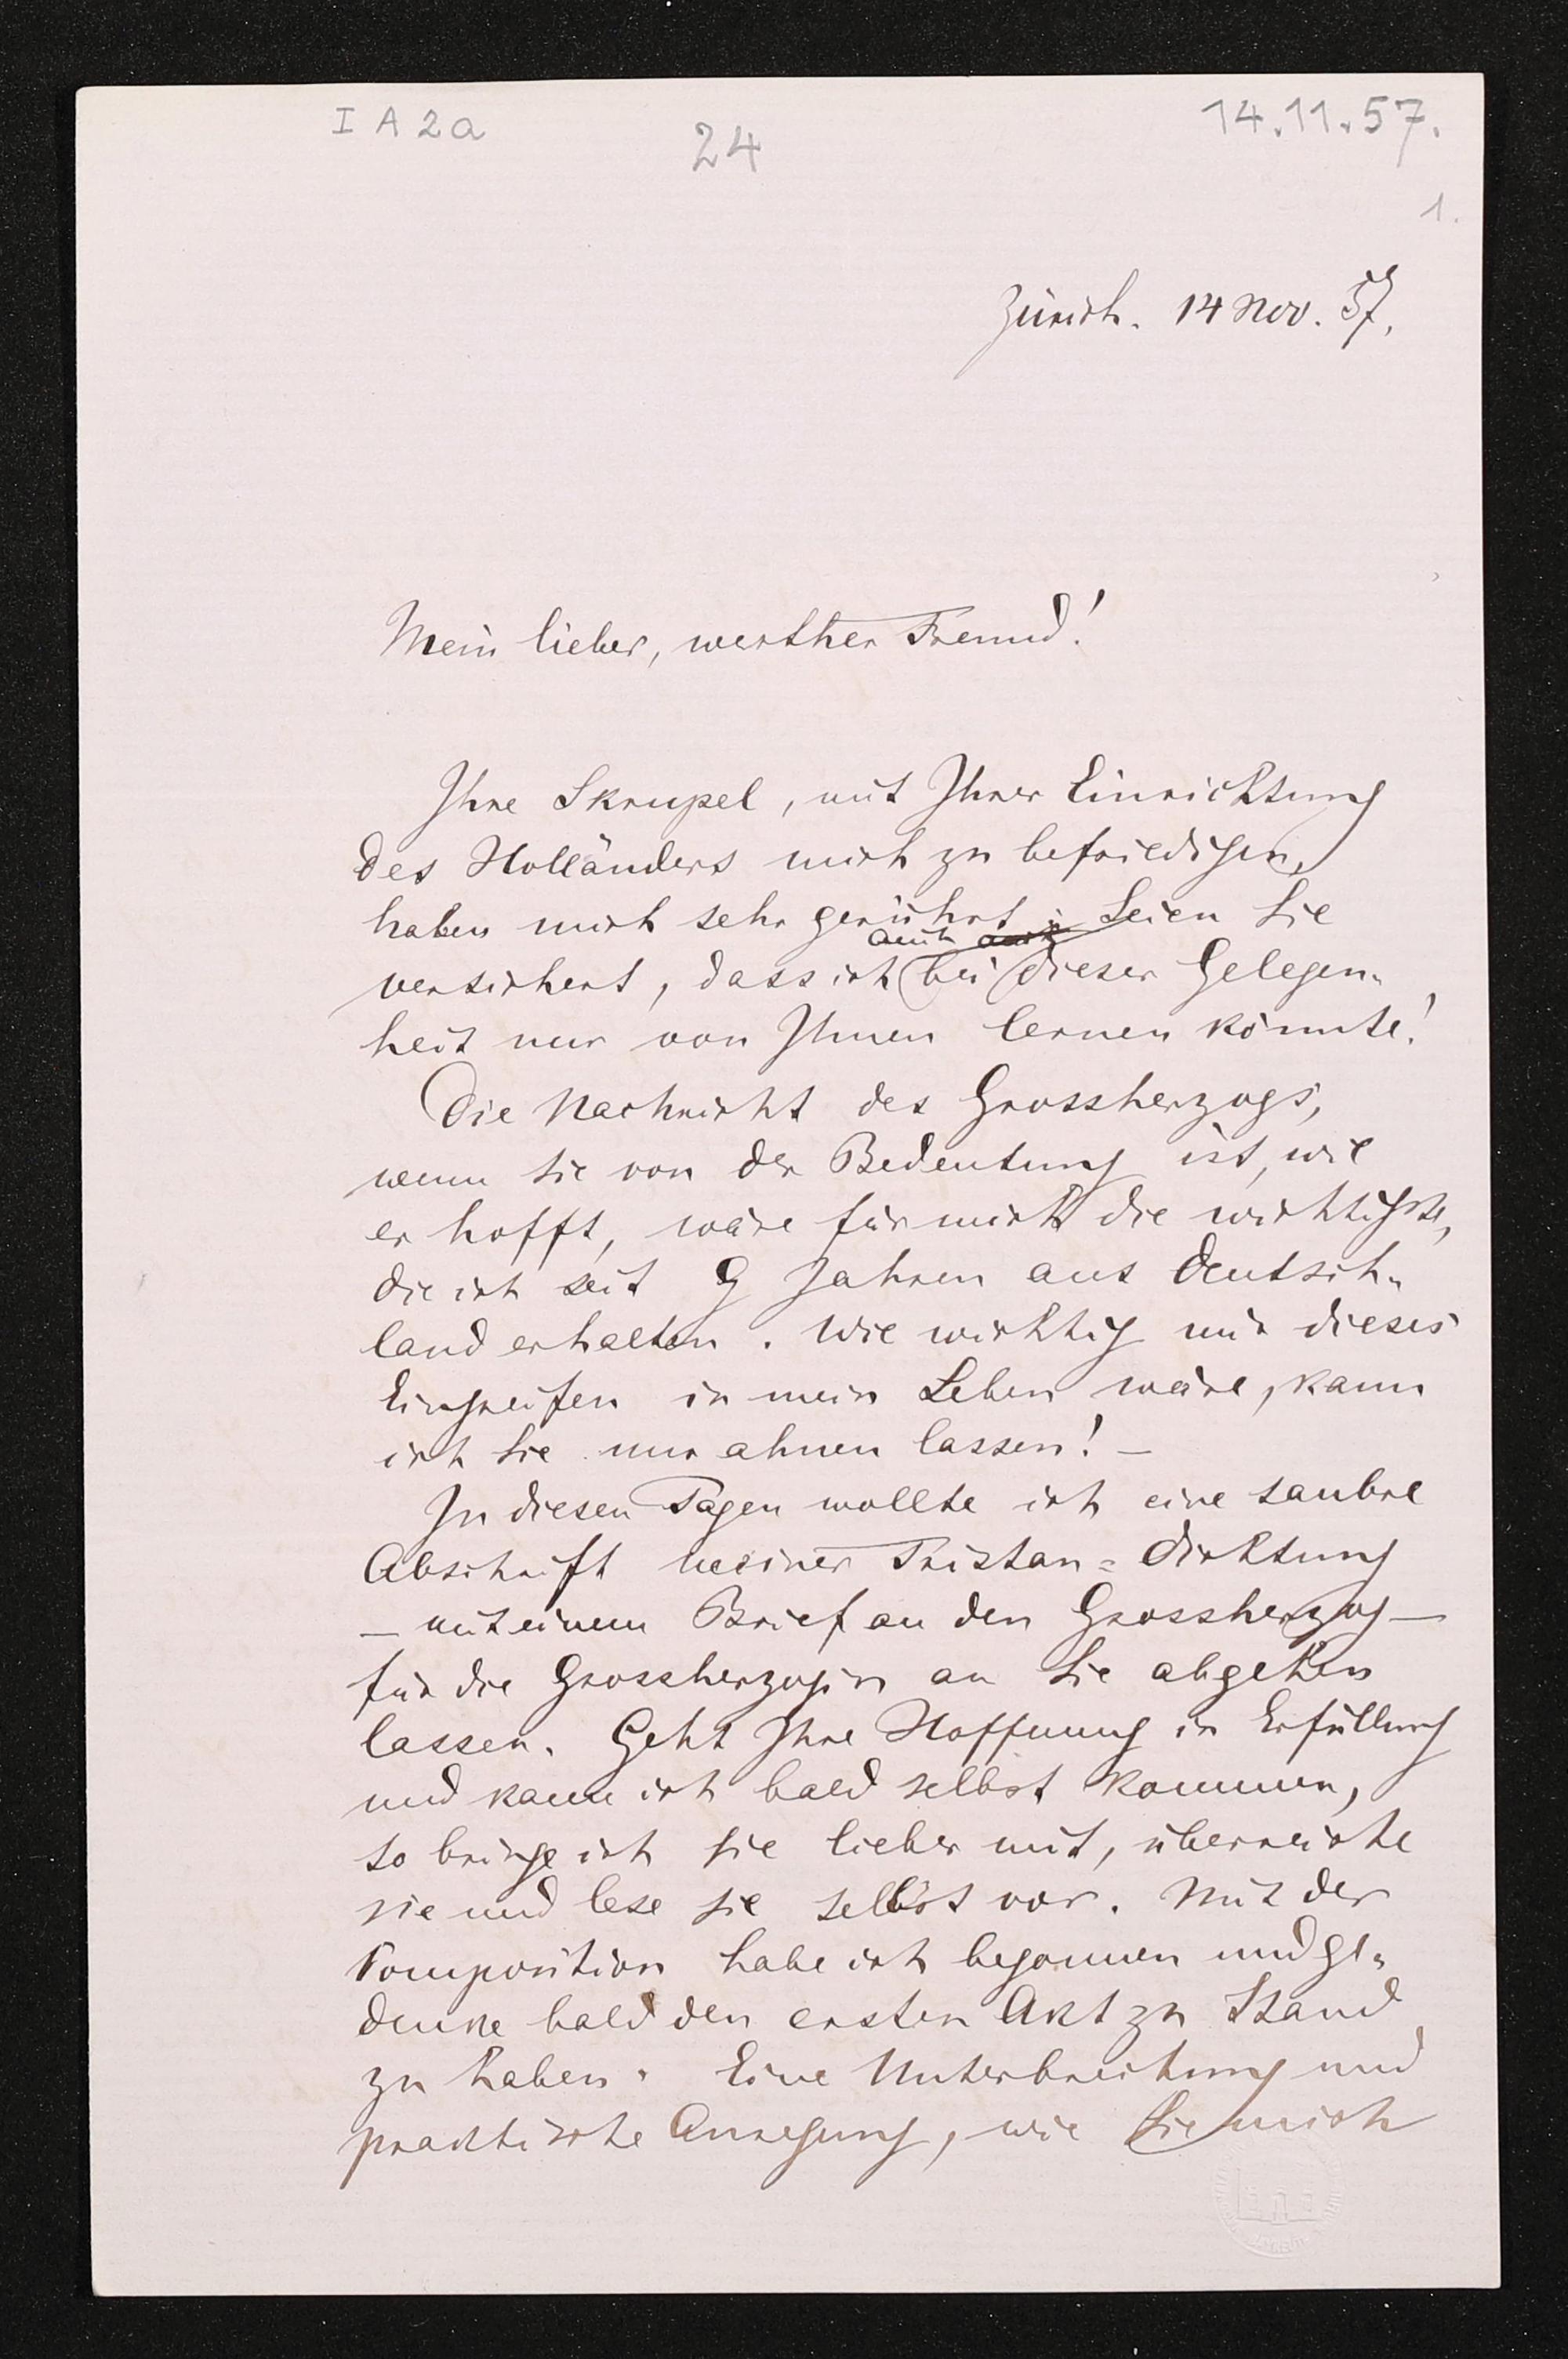 I A 2a 24 14.11.57.
1.
Zürich. 14 Nov. 57.
Mein lieber, werther Freund!
Ihre Skrupel, mit Ihrer Einrichtung
des Holländers mich zu befriedigen,
haben mich sehr gerührt: Seien Sie
auch
versichert, dass ich bei dieser Gelegen-
heit nur von Ihnen lernen könnte!
Die Nachricht des Grossherzogs,
wenn sie von der Bedeutung ist, wie
er hofft, wäre für mich die wichtigste,
die ich seit 9 Jahren aus Deutsch-
land erhalten. Wie wichtig mir dieses
Eingreifen in mein Leben wäre, kann
ich Sie nur ahnen lassen! —
In diesen Tagen wollte ich eine saubre
Abschrift meiner Tristan=Dichtung
— mit einem Brief an den Grossherzog —
für die Grossherzogin an Sie abgehen
lassen. Geht Ihre Hoffnung in Erfüllung
und kann ich bald selbst kommen,
so bringe ich sie lieber mit, überreiche
sie und lese sie selbst vor. Mit der
Komposition habe ich begonnen und ge-
denke bald den ersten Akt zu Stand
zu haben. Eine Unterbrechung und
praktische Anregung, wie Sie mich